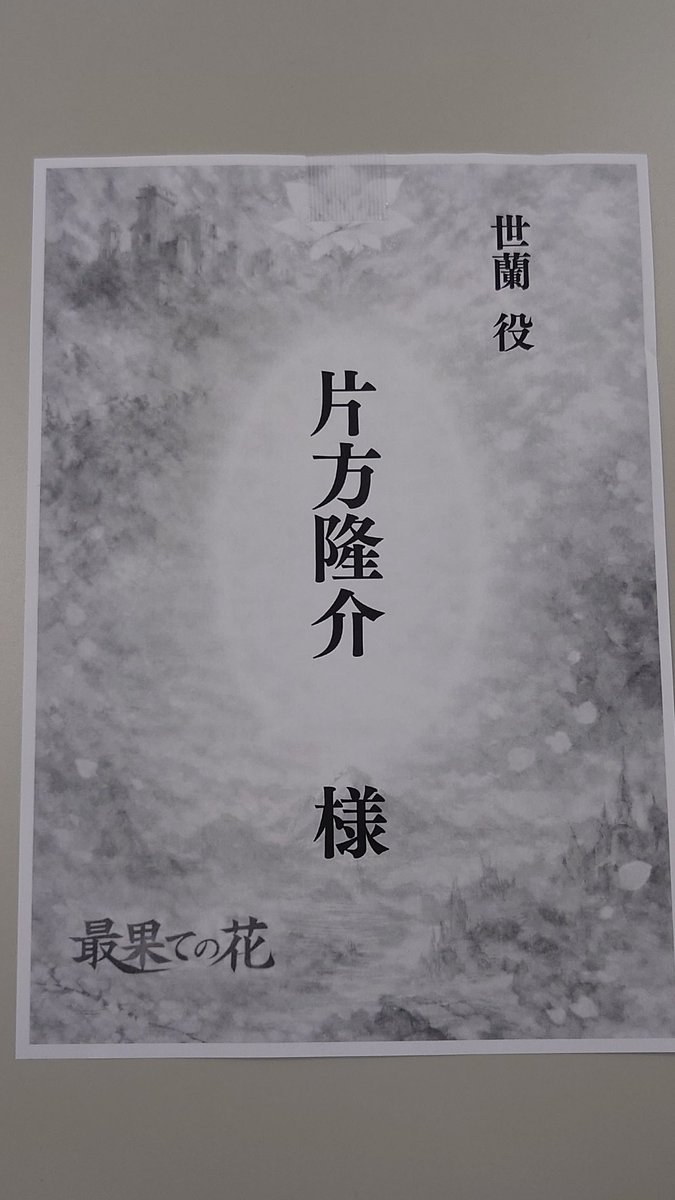 世蘭 役
片方隆介 様
最果ての花